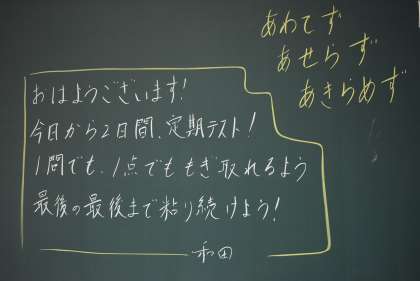 あわてず
あせらず
あきらめず
おはようございます!
今日から2日間、定期テスト!
1問でも、1点でももぎ取れるよう
最後の最後まで粘り続けよう!
和田